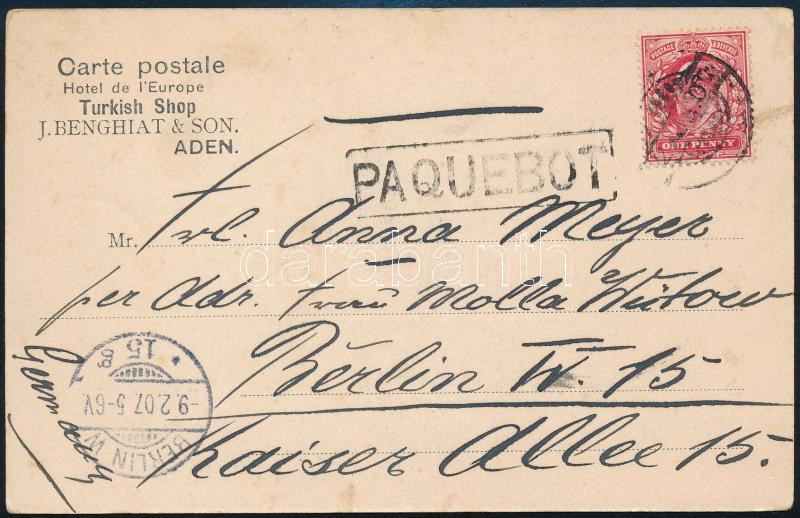 Carte postale
Hotel de l'Europe
Turkish Shop
J. BENGHIAT & SON.
ADEN.
POSTAGE & REVENUE
ONE PENNY
PAQUEBOT
Mr. Frl. Anna Meyer
per Adr. Frau Molla Wutow
Berlin W. 15
Kaiser Allee 15.
Germany
BERLIN W
9.2.07. 5-6V.
* 15 g
darabanth